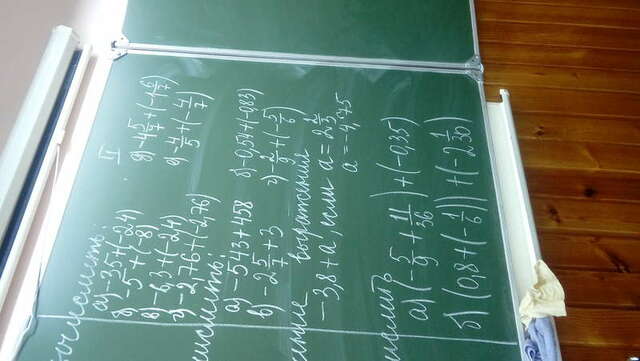 вычислить:
II
а) -35+(-24)
б) -5+(-8)
в) -6,3+(-2,4)
г) -2,76+(-2,76)
д) -4 5/7+(-1 6/7)
е) -4/5+(-4/7)
числить:
а) -543+458 б) -0,54+(-0,83)
в) -2 5/7+3 г) -2/9+(-5/6)
ение выражения
-3,8+а, если а=2 2/3
а=-4,75
числить
а) (-5/9+11/36)+(-0,35)
б) (0,8+(-1/6))+(-2 1/30)